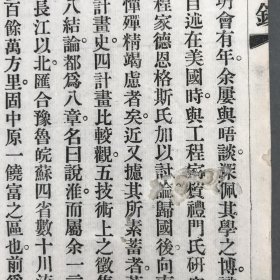 錄
會有年。余屢與晤談。深佩其學之博
自述在美國時與工程禮門氏研
程家德恩格斯氏加以討論歸國後向
憚殫精竭慮者矣。近又攄其所素蓄者
計畫史四計畫比較觀五技術上之徵
八結論都爲八章名曰說淮而屬余一
長江以北匯合豫魯皖蘇四省數十川
百餘萬方里固中原一饒富之區也前